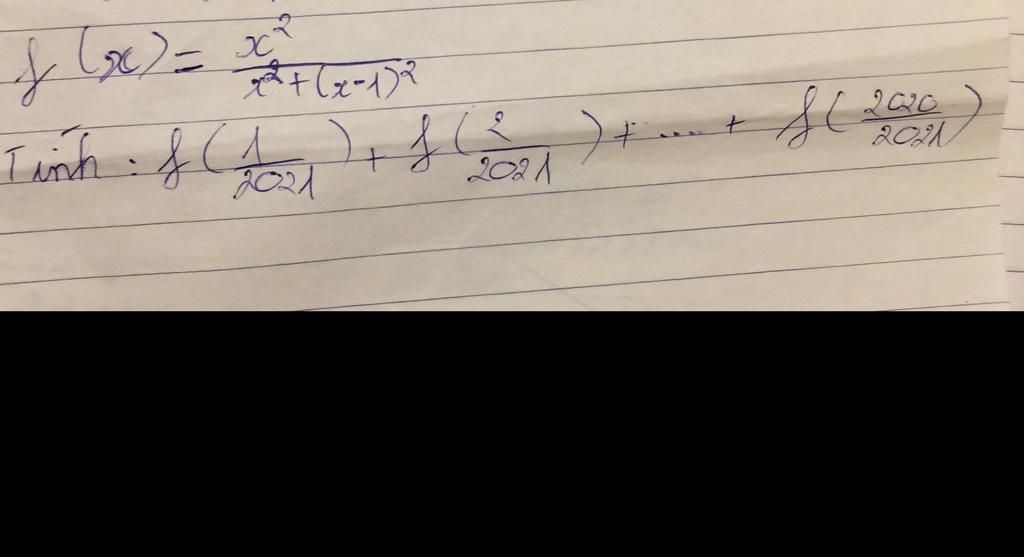 f(x) = x²/(x²+(x-1)²)
Tính : f(1/2021) + f(2/2021) + .... + f(2020/2021)